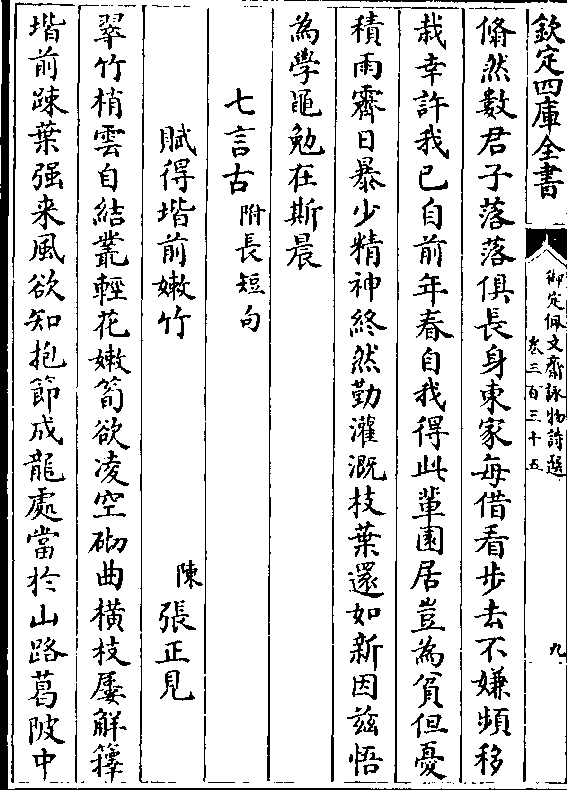 欽定四庫全書
御定佩文齋詠物詩選
卷三百三十五
九
翛然數君子落落俱長身東家每借看步去不嫌頻移
栽幸許我已自前年春自我得此輩園居豈為貧但憂
積雨霽日暴少精神終然勤灌溉枝葉還如新因兹悟
為學黽勉在斯晨
七言古附長短句
賦得堦前嫩竹
陳張正見
翠竹梢雲自結叢輕花嫩筍欲凌空砌曲橫枝屢解籜
堦前踈葉强来風欲知抱節成龍處當於山路葛陂中